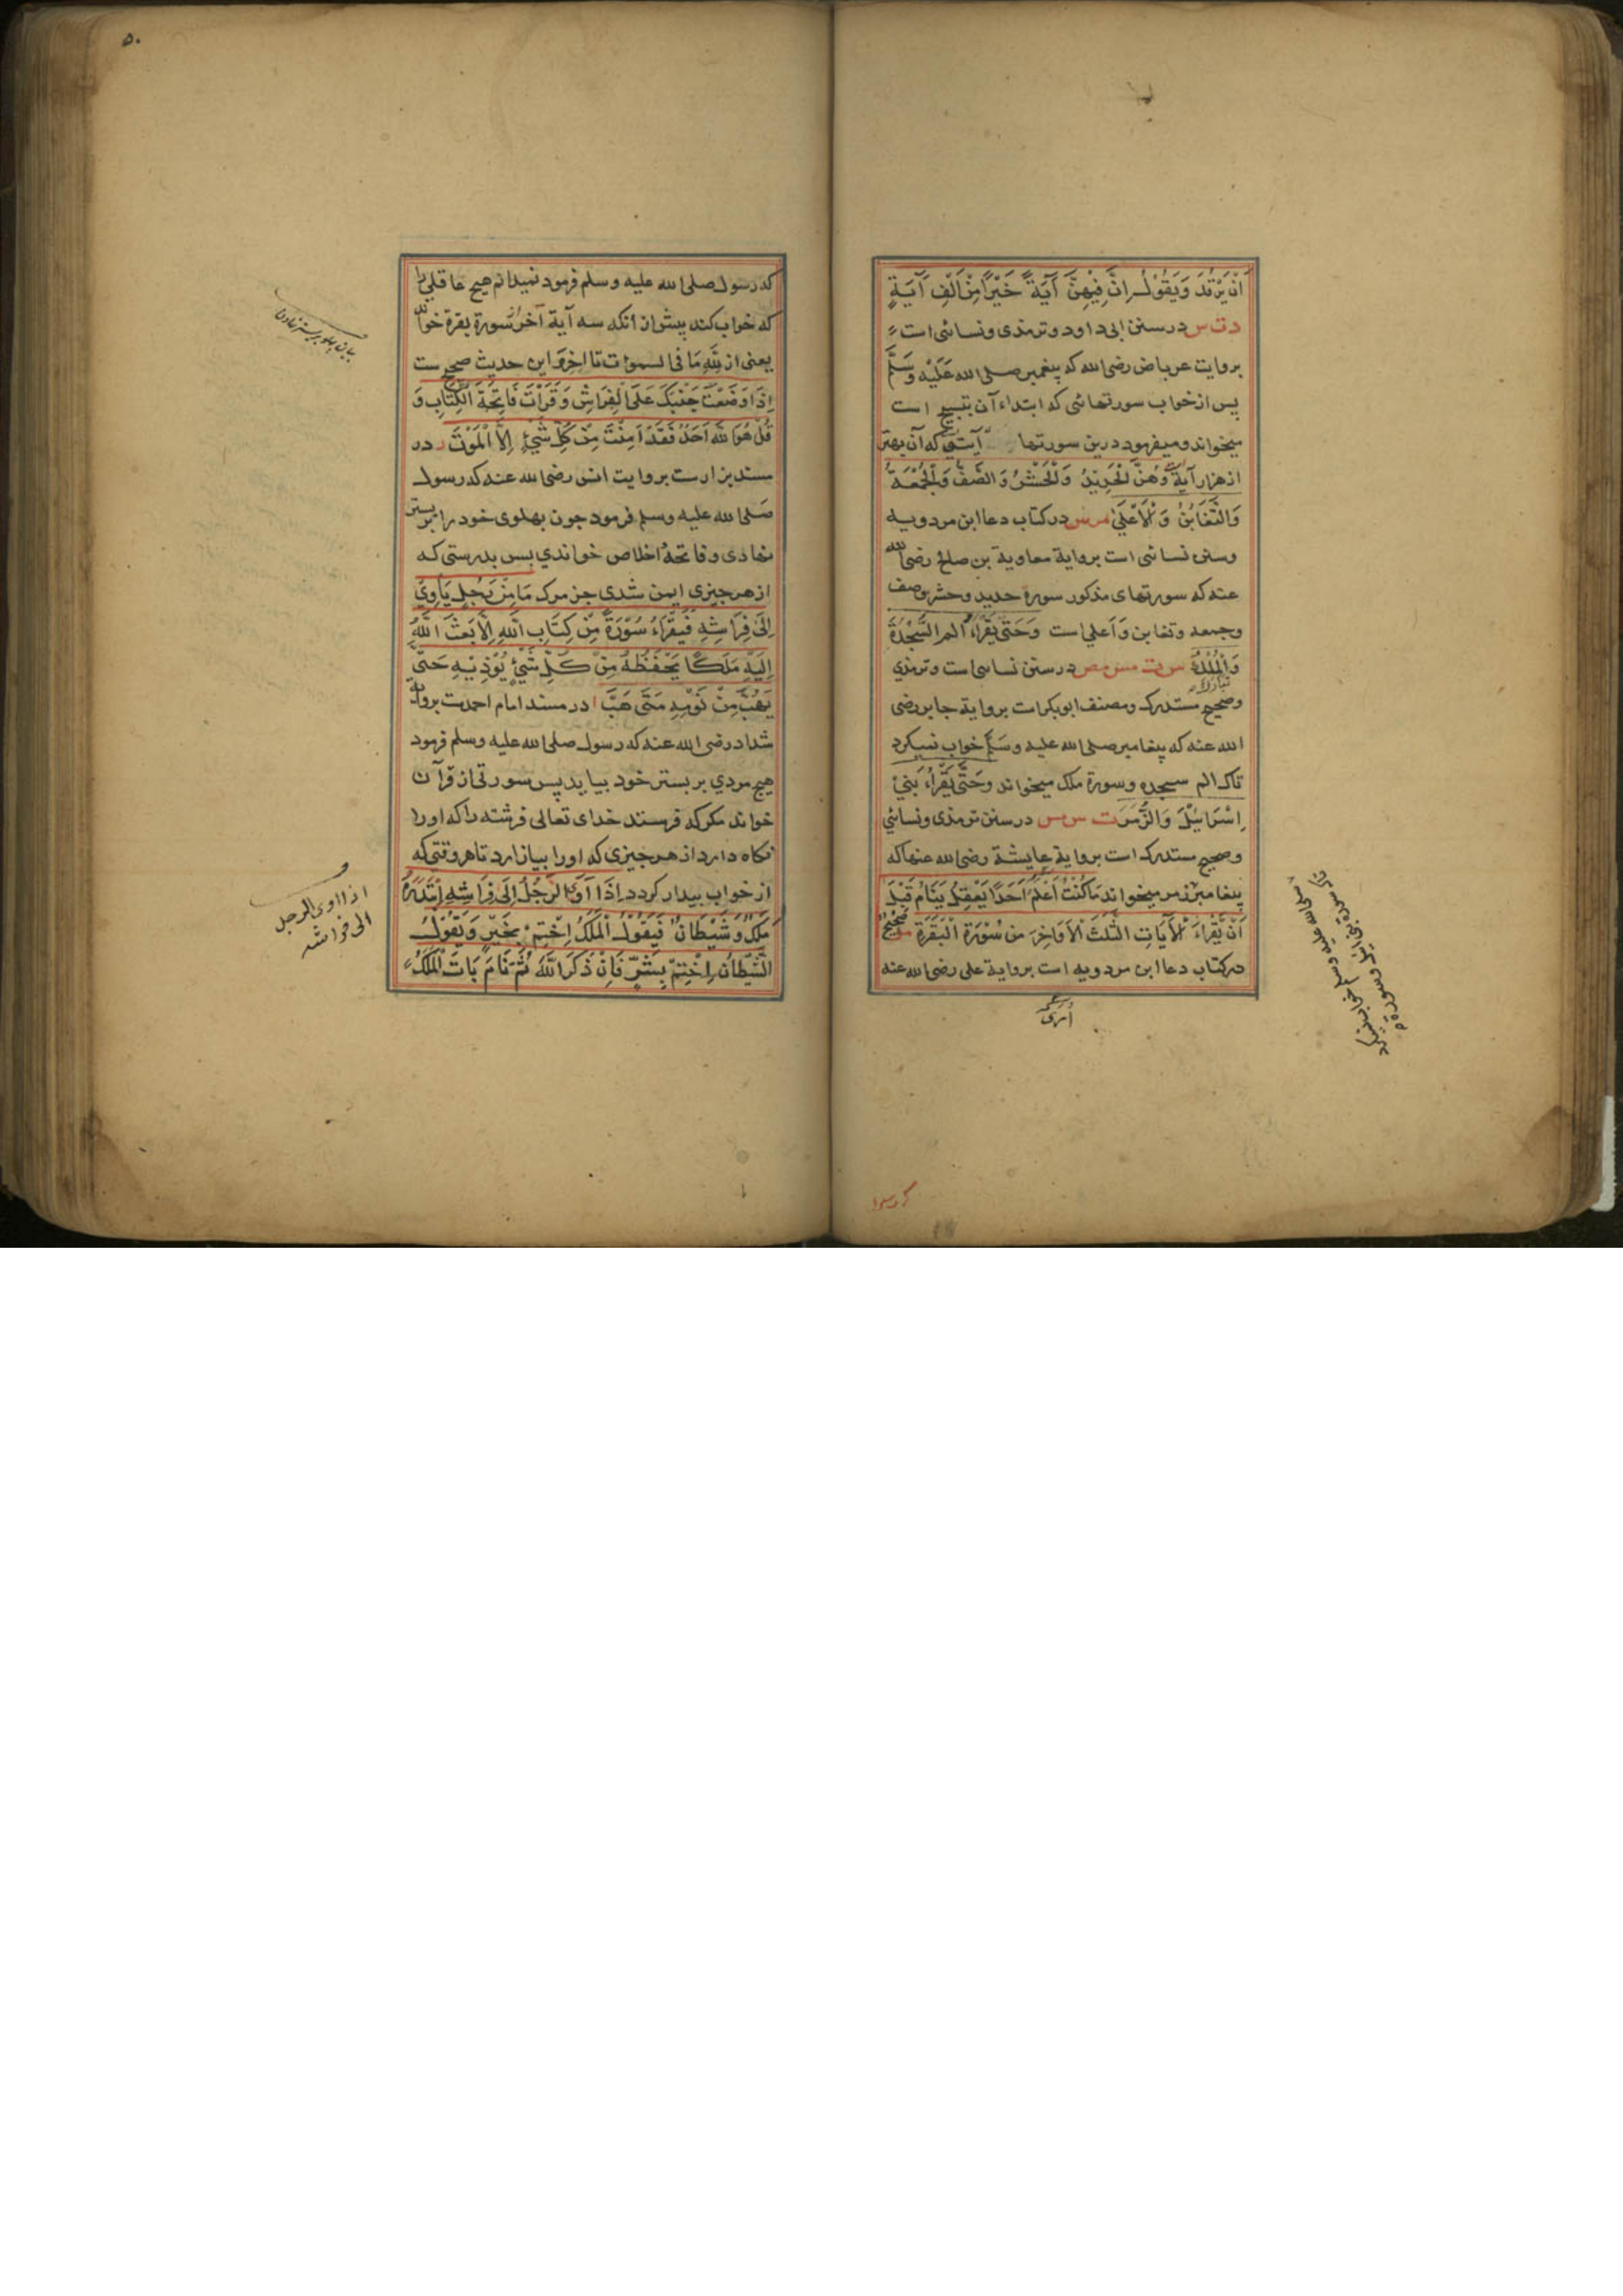 اَنْ يَرْقُدَ وَيَقُوْلُ اِنَّ فِيْهِنَّ آيَةً خَيْرًا مِّنْ اَلْفِ آيَةٍ
دت س در سنن ابی داود و ترمذی و نسائی است
بروایت عرباض رضی الله که پیغمبر صلی الله عَلَيْهِ وَسَلَّمَ
پس از خواب سورتهائی که ابتداء آن بتسبیح است
میخواند و میفرمود درین سورتها آیتی که آن بهتر
از هزار آیة وَهُنَّ الْحَدِيْدُ وَالْحَشْرُ وَالصَّفُّ وَالْجُمُعَةُ
وَالتَّغَابُنُ وَالْاَعْلَىٰ مر س در کتاب دعا ابن مردویه
وسنن نسائی است بروایة معاویة بن صالح رضی الله
عنه که سورتهای مذکور سورة حدید وحشر وصف
وجمعه وتغابن وَاَعلی است وَحَتّٰى يَقْرَاَ الم السَّجْدَةَ
وَالْمُلْكُ س ت مس مص در سنن نسائی است وترمذی
تبارک
وصحیح مستدرک ومصنف ابوبکر است بروایة جابر رضی
الله عنه که پیغامبر صلی الله علیه وسَلَّمَ خواب نمیکرد
تاکه الم سجده وسورة ملک میخواند وحَتّٰى يَقْرَاَ بَنِيْ
اِسْرَائِيْلَ وَالزُّمَرَ ت س مس در سنن ترمذی ونسائی
وصحیح مستدرک است بروایة عایشة رضی الله عنها که
پیغامبر زمر میخواند مَا كُنْتُ اَعْلَمُ اَحَدًا يَعْقِلُ يَنَامُ قَبْلَ
اَنْ يَّقْرَاَ الْآيَاتِ الثَّلٰثَ الْاَوَاخِرَ مِنْ سُوْرَةِ الْبَقَرَةِ مو صحيح
در کتاب دعا ابن مردویه است بروایة علی رضی الله عنه
۵۰
که رسول صلی الله علیه وسلم فرمود نمیدانم هیچ عاقلی را
که خواب کند پیش از آنکه سه آیة آخر سورة بقرة خواند
یعنی از لِلّٰهِ مَا فِی السموات تا اخر وَاین حدیث صحیح ست
اِذَا وَضَعْتَ جَنْبَكَ عَلَى الْفِرَاشِ وَقَرَأْتَ فَاتِحَةَ الْكِتَابِ وَ
قُلْ هُوَ اللّٰهُ اَحَدٌ فَقَدْ اَمِنْتَ مِنْ كُلِّ شَيْءٍ اِلَّا الْمَوْتَ ر در
مسند بزار ست بروایت انس رضی الله عنه که رسول
صَلی الله علیه وسلم فرمود چون پهلوی خود را بر بستر
نهادی وفاتحهٔ اخلاص خواندی پس بدرستی که
از هر چیزی ایمن شدی جز مرک مَا مِنْ رَجُلٍ يَّأْوِيْ
اِلٰى فِرَاشِهِ فَيَقْرَاُ سُوْرَةً مِّنْ كِتَابِ اللّٰهِ اِلَّا بَعَثَ اللّٰهُ
اِلَيْهِ مَلَكًا يَحْفَظُهُ مِنْ كُلِّ شَيْءٍ يُّؤْذِيْهِ حَتّٰى
يَهُبَّ مِنْ نَوْمِهِ مَتٰى هَبَّ ا در مسند امام احمدست بروایة
شداد رضی الله عنه که رسول صلی الله علیه وسلم فرمود
هیچ مردی بر بستر خود بیاید پس سورتی از قرآن
خواند مکر که فرستد خدای تعالی فرشته را که اورا
نکاه دارد از هر چیزی که اورا بیازارد تا هر وقتی که
از خواب بیدار کردد اِذَا اَوَى الرَّجُلُ اِلٰى فِرَاشِهِ اِبْتَدَرَهُ
مَلَكٌ وَّشَيْطَانٌ فَيَقُوْلُ الْمَلَكُ اِخْتِمْ بِخَيْرٍ وَيَقُوْلُ
الشَّيْطَانُ اِخْتِمْ بِشَرٍّ فَاِنْ ذَكَرَ اللّٰهَ ثُمَّ نَامَ بَاتَ الْمَلَكُ
اذا اوی الرجل
الی فراشه